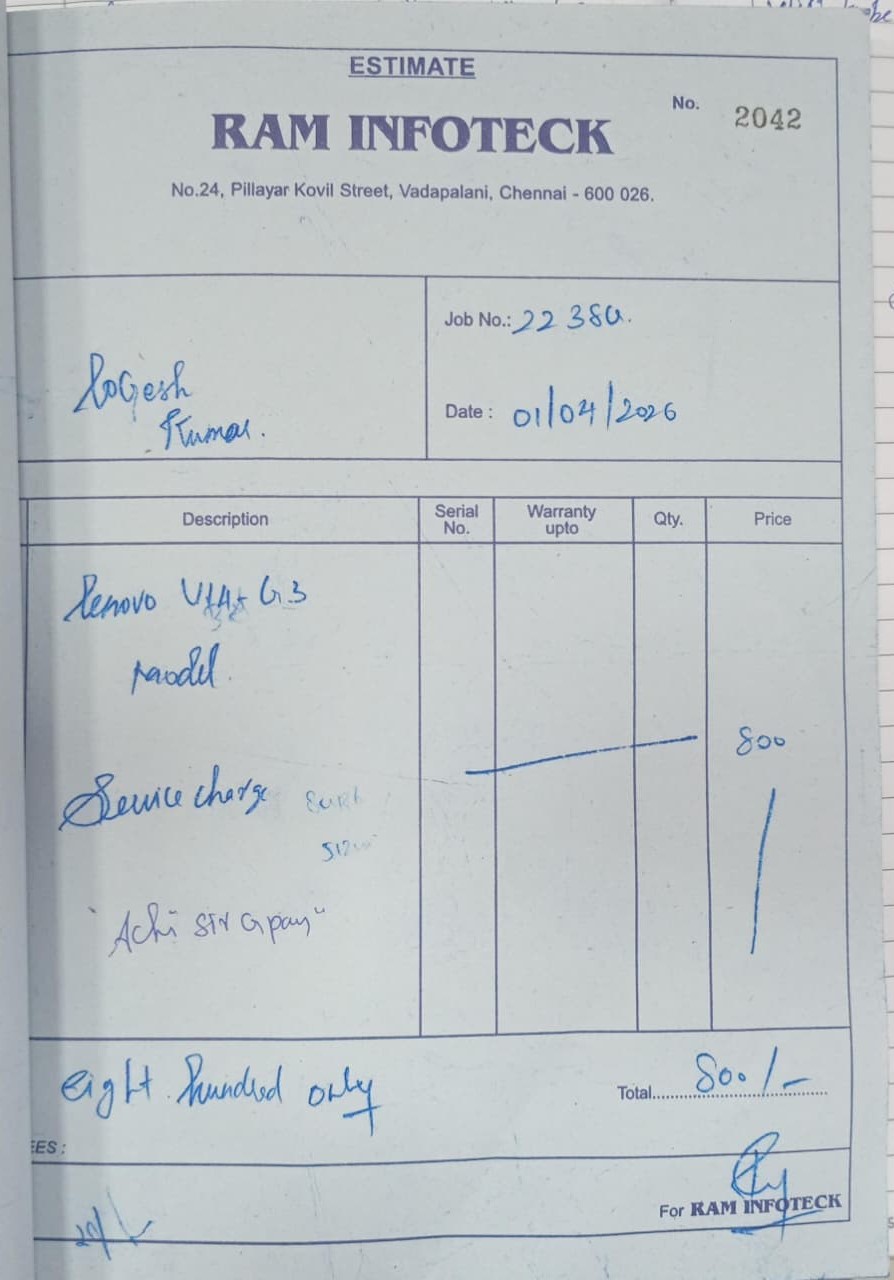 ESTIMATE
No. 2042
RAM INFOTECK
No.24, Pillayar Kovil Street, Vadapalani, Chennai - 600 026.
Job No.: 22380.
Logesh
Kumar.
Date : 01/04/2026
Description Serial No. Warranty upto Qty. Price
Lenovo V14 G3
Model.
800
Service charge
"Achi Sir Gpay"
Eight hundred only
Total 800/-
EES :
For RAM INFOTECK